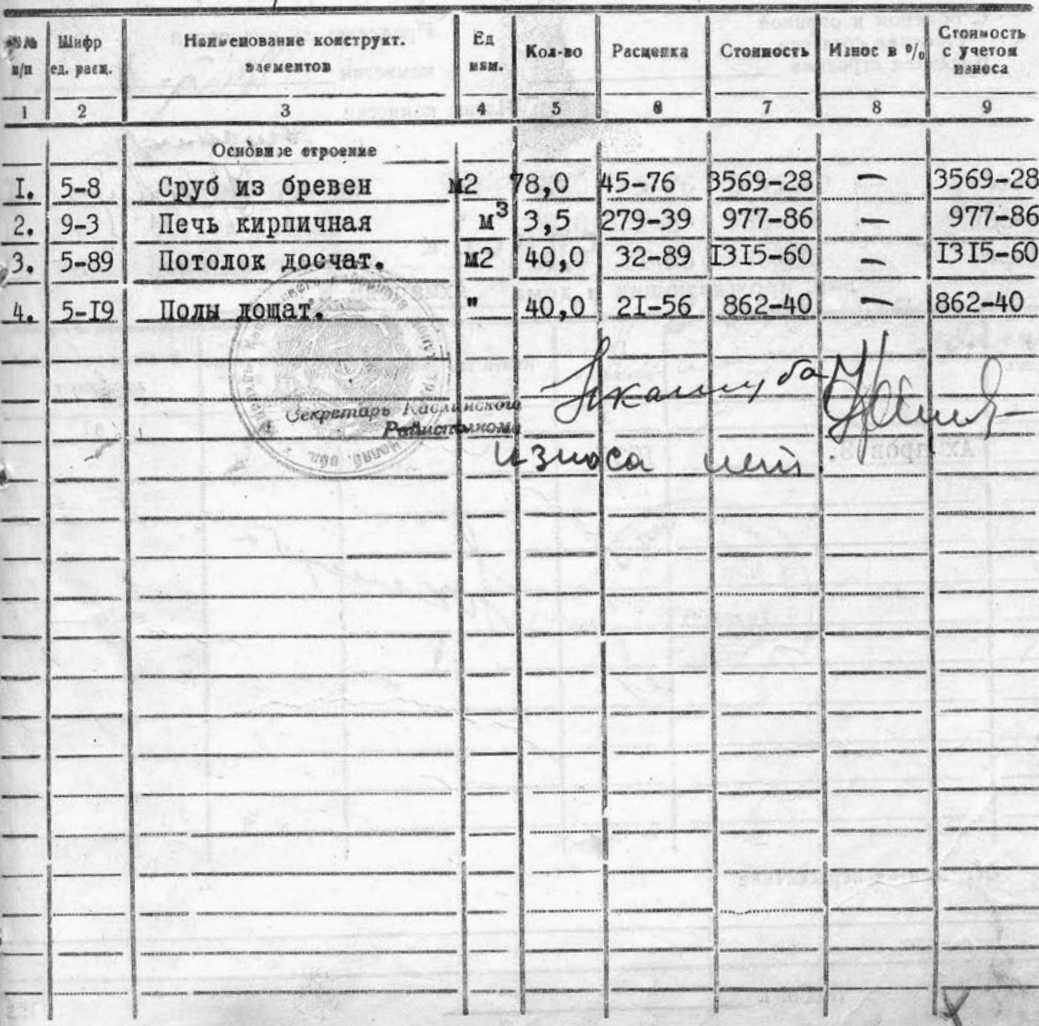 №№ п/п | Шифр ед. расц. | Наименование конструкт. элементов | Ед изм. | Кол-во | Расценка | Стоимость | Износ в % | Стоимость с учетом износа
1 | 2 | 3 | 4 | 5 | 6 | 7 | 8 | 9
Основное строение
I. | 5-8 | Сруб из бревен | м2 | 78,0 | 45-76 | 3569-28 | — | 3569-28
2. | 9-3 | Печь кирпичная | м³ | 3,5 | 279-39 | 977-86 | — | 977-86
3. | 5-89 | Потолок досчат. | м2 | 40,0 | 32-89 | I3I5-60 | — | I3I5-60
4. | 5-I9 | Полы дощат. | " | 40,0 | 2I-56 | 862-40 | — | 862-40
Секретарь Каслинского
Райисполкома
износа нет.